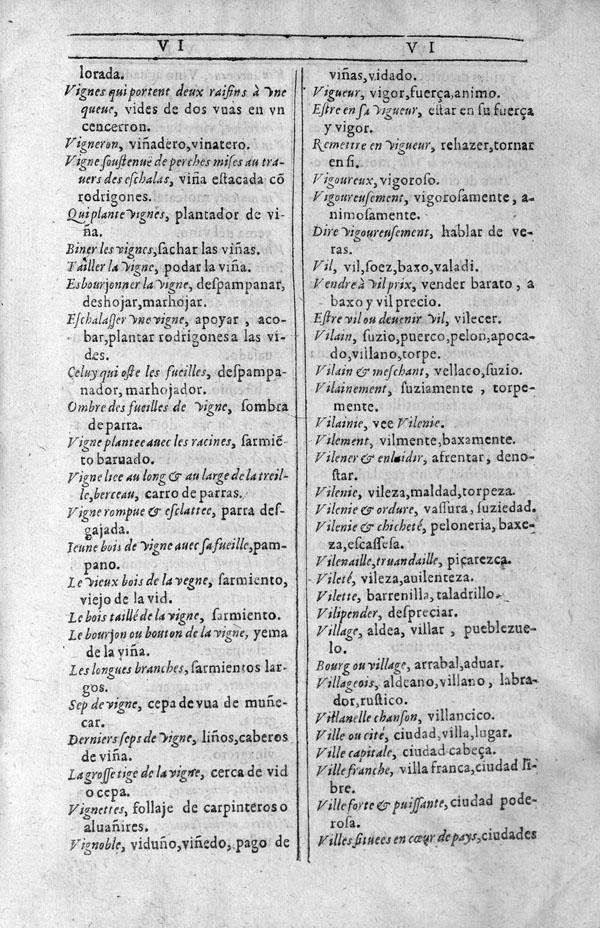 VI
VI
lorada.
Vignes qui portent deux raiſins à vne
queue, vides de dos vuas en vn
cencerron.
Vigneron, viñadero, vinatero.
Vigne ſouſtenuë de perches miſes au tra-
uers des eſchalas, viña eſtacada cõ
rodrigones.
Qui plante vignes, plantador de vi-
ña.
Biner les vignes, ſachar las viñas.
Tailler la vigne, podar la viña.
Esbourjonner la vigne, deſpampanar,
deshojar, marhojar.
Eſchalaſſer vne vigne, apoyar, aco-
bar, plantar rodrigones a las vi-
des.
Celuy qui oſte les fueilles, deſpampa-
nador, marhojador.
Ombre des fueilles de vigne, ſombra
de parra.
Vigne plantee auec les racines, ſarmiẽ-
to baruado.
Vigne liee au long & au large de la treil-
le, berceau, carro de parras.
Vigne rompue & eſclattee, parra deſ-
gajada.
Ieune bois de vigne auec ſa fueille, pam-
pano.
Le vieux bois de la vegne, ſarmiento,
viejo de la vid.
Le bois taillé de la vigne, ſarmiento.
Le bourjon ou bouton de la vigne, yema
de la viña.
Les longues branches, ſarmientos lar-
gos.
Sep de vigne, cepa de vua de muñe-
car.
Derniers ſeps de vigne, liños, caberos
de viña.
La groſſe tige de la vigne, cerca de vid
o cepa.
Vignettes, follaje de carpinteros o
aluañires.
Vignoble, viduño, viñedo, pago de
viñas, vidado.
Vigueur, vigor, fuerça, animo.
Eſtre en ſa vigueur, eſtar en ſu fuerça
y vigor.
Remettre en vigueur, rehazer, tornar
en ſi.
Vigoureux, vigoroſo.
Vigoureuſement, vigoroſamente, a-
nimoſamente.
Dire vigoureuſement, hablar de ve-
ras.
Vil, vil, ſoez, baxo, valadi.
Vendre à vil prix, vender barato, a
baxo y vil precio.
Eſtre vil ou deuenir vil, vilecer.
Vilain, ſuzio, puerco, pelon, apoca-
do, villano, torpe.
Vilain & meſchant, vellaco, ſuzio.
Vilainement, ſuziamente, torpe-
mente.
Vilainie, vee Vilenie.
Vilement, vilmente, baxamente.
Vilener & enlaidir, afrentar, deno-
ſtar.
Vilenie, vileza, maldad, torpeza.
Vilenie & ordure, vaſſura, ſuziedad.
Vilenie & chicheté, peloneria, baxe-
za, eſcaſſeſa.
Vilenaille, truandaille, piçarezca.
Vileté, vileza, auilenteza.
Vilette, barrenilla, taladrillo.
Vilipender, deſpreciar.
Village, aldea, villar, pueblezue-
lo.
Bourg ou village, arrabal, aduar.
Villageois, aldeano, villano, labra-
dor, ruſtico.
Villanelle chanſon, villancico.
Ville ou cité, ciudad, villa, lugar.
Ville capitale, ciudad cabeça.
Ville franche, villa franca, ciudad li-
bre.
Ville forte & puiſſante, ciudad pode-
roſa.
Villes ſituees en cœur de pays, ciudades